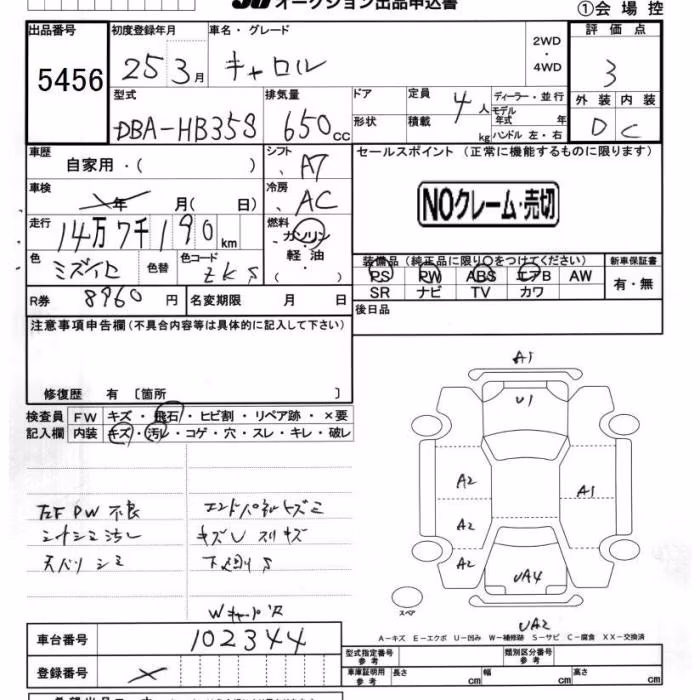 オークション出品申込書
①会場控
出品番号 初度登録年月 車名・グレード 評価点
5456 25 3月 キャロル 2WD・4WD 3
型式 排気量 ドア 定員 4人 ディーラー・並行 外装 内装
DBA-HB35S 650cc 形状 積載 kg モデル年式 年 ハンドル 左・右 D C
車歴 自家用・( ) シフト AT セールスポイント (正常に機能するものに限ります)
車検 年 月( 日) 冷房 AC NOクレーム・売切
走行 14万7千190km 燃料 ガソリン
色 ミズイロ 色替 色コード ZKS 軽油・( )
装備品 (純正品に限り○をつけてください) 新車保証書
PS PW ABS エアB AW 有・無
SR ナビ TV カワ
R券 8960円 名変期限 月 日 後日品
注意事項申告欄(不具合内容等は具体的に記入して下さい)
修復歴 有 〔箇所 〕
検査員記入欄 FW キズ・飛石・ヒビ割・リペア跡・×要
内装 キズ・汚レ・コゲ・穴・スレ・キレ・破レ
左F PW 不良 エンドパネルキズミ
シートシミ汚レ キズU スリキズ
天バリ シミ 下廻りS
A1
U1
A2
A1
A2
A2
UA4
スペア
UA2
A-キズ E-エクボ U-凹み W-補修跡 S-サビ C-腐食 XX-交換済
車台番号 102344
型式指定番号 参考 類別区分番号 参考
登録番号 車庫証明用 参考 長さ cm 幅 cm 高さ cm